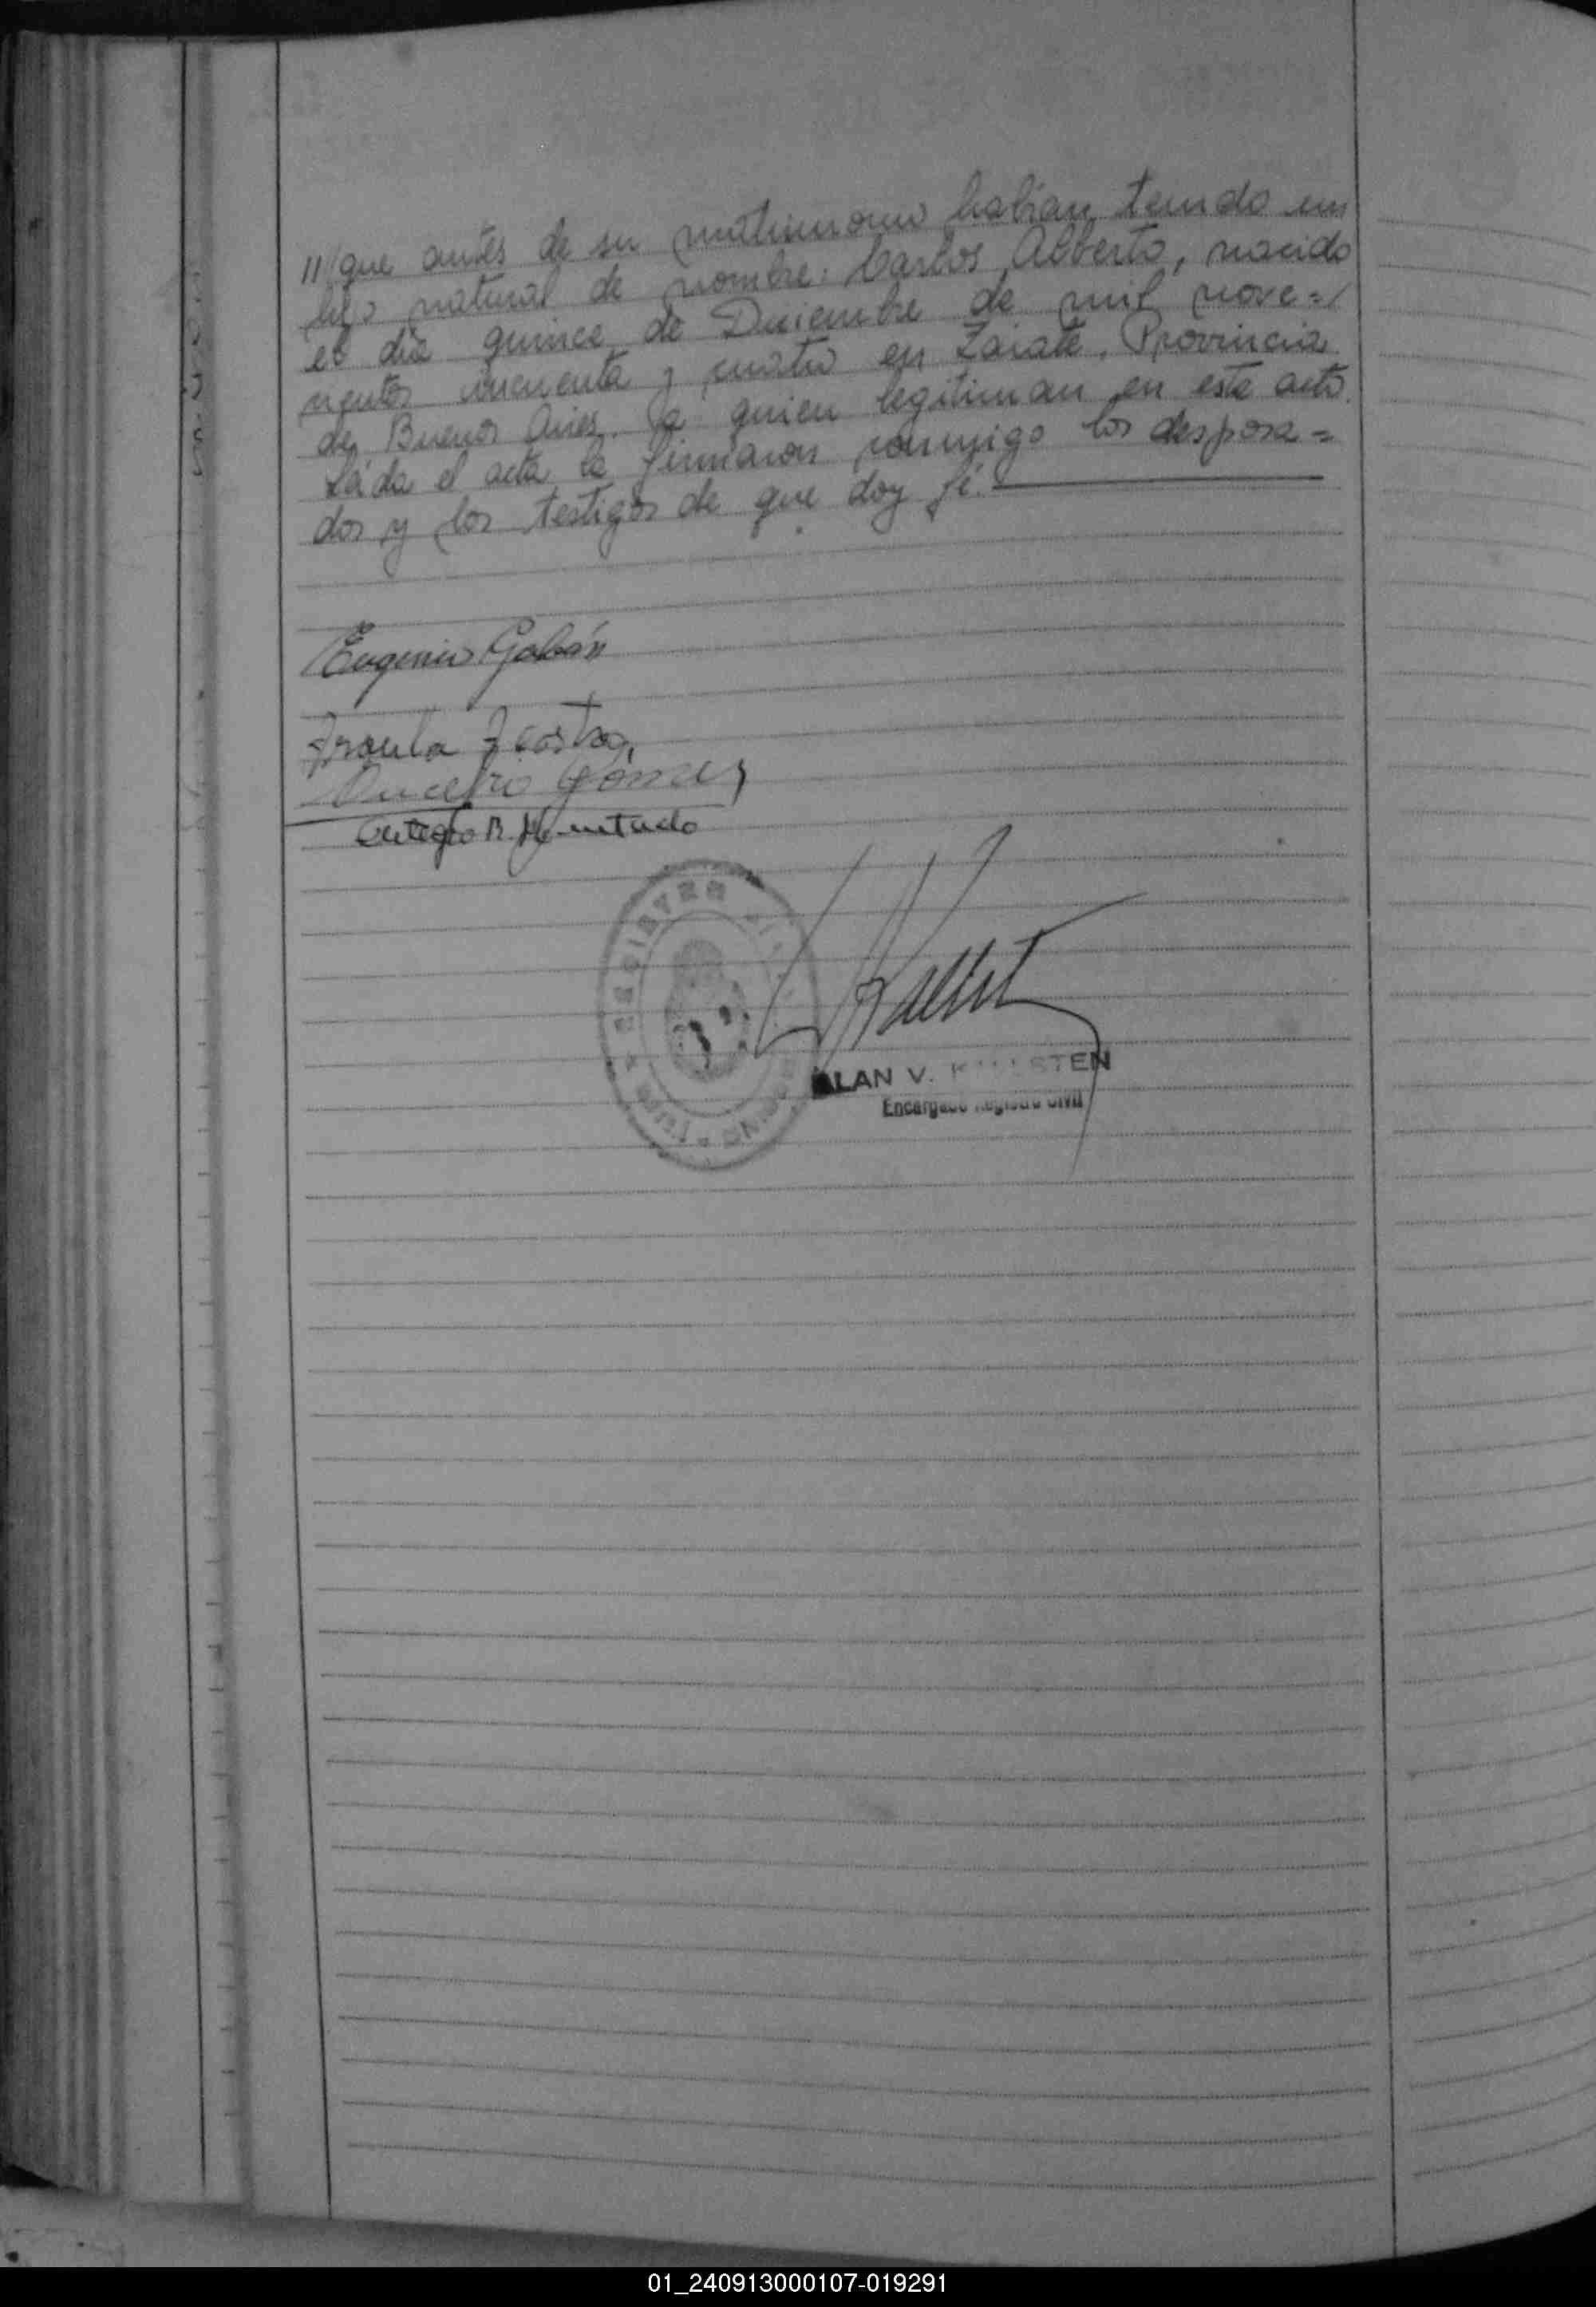 11/que antes de su matrimonio habian tenido un
hijo natural de nombre: Carlos Alberto, nacido
el dia quince de Diciembre de mil nove=/
cientos cincuenta y cuatro en Zarate, Provincia
de Buenos Aires. a quien legitiman en este acto.
Leida el acta la firmaron conmigo los desposa=
dos y los testigos de que doy fé.
Eugenio Galván
Castro
Gómez
B. Hurtado
REGISTRO
ALAN V. STEN
Encargado Registro Civil
01_240913000107-019291